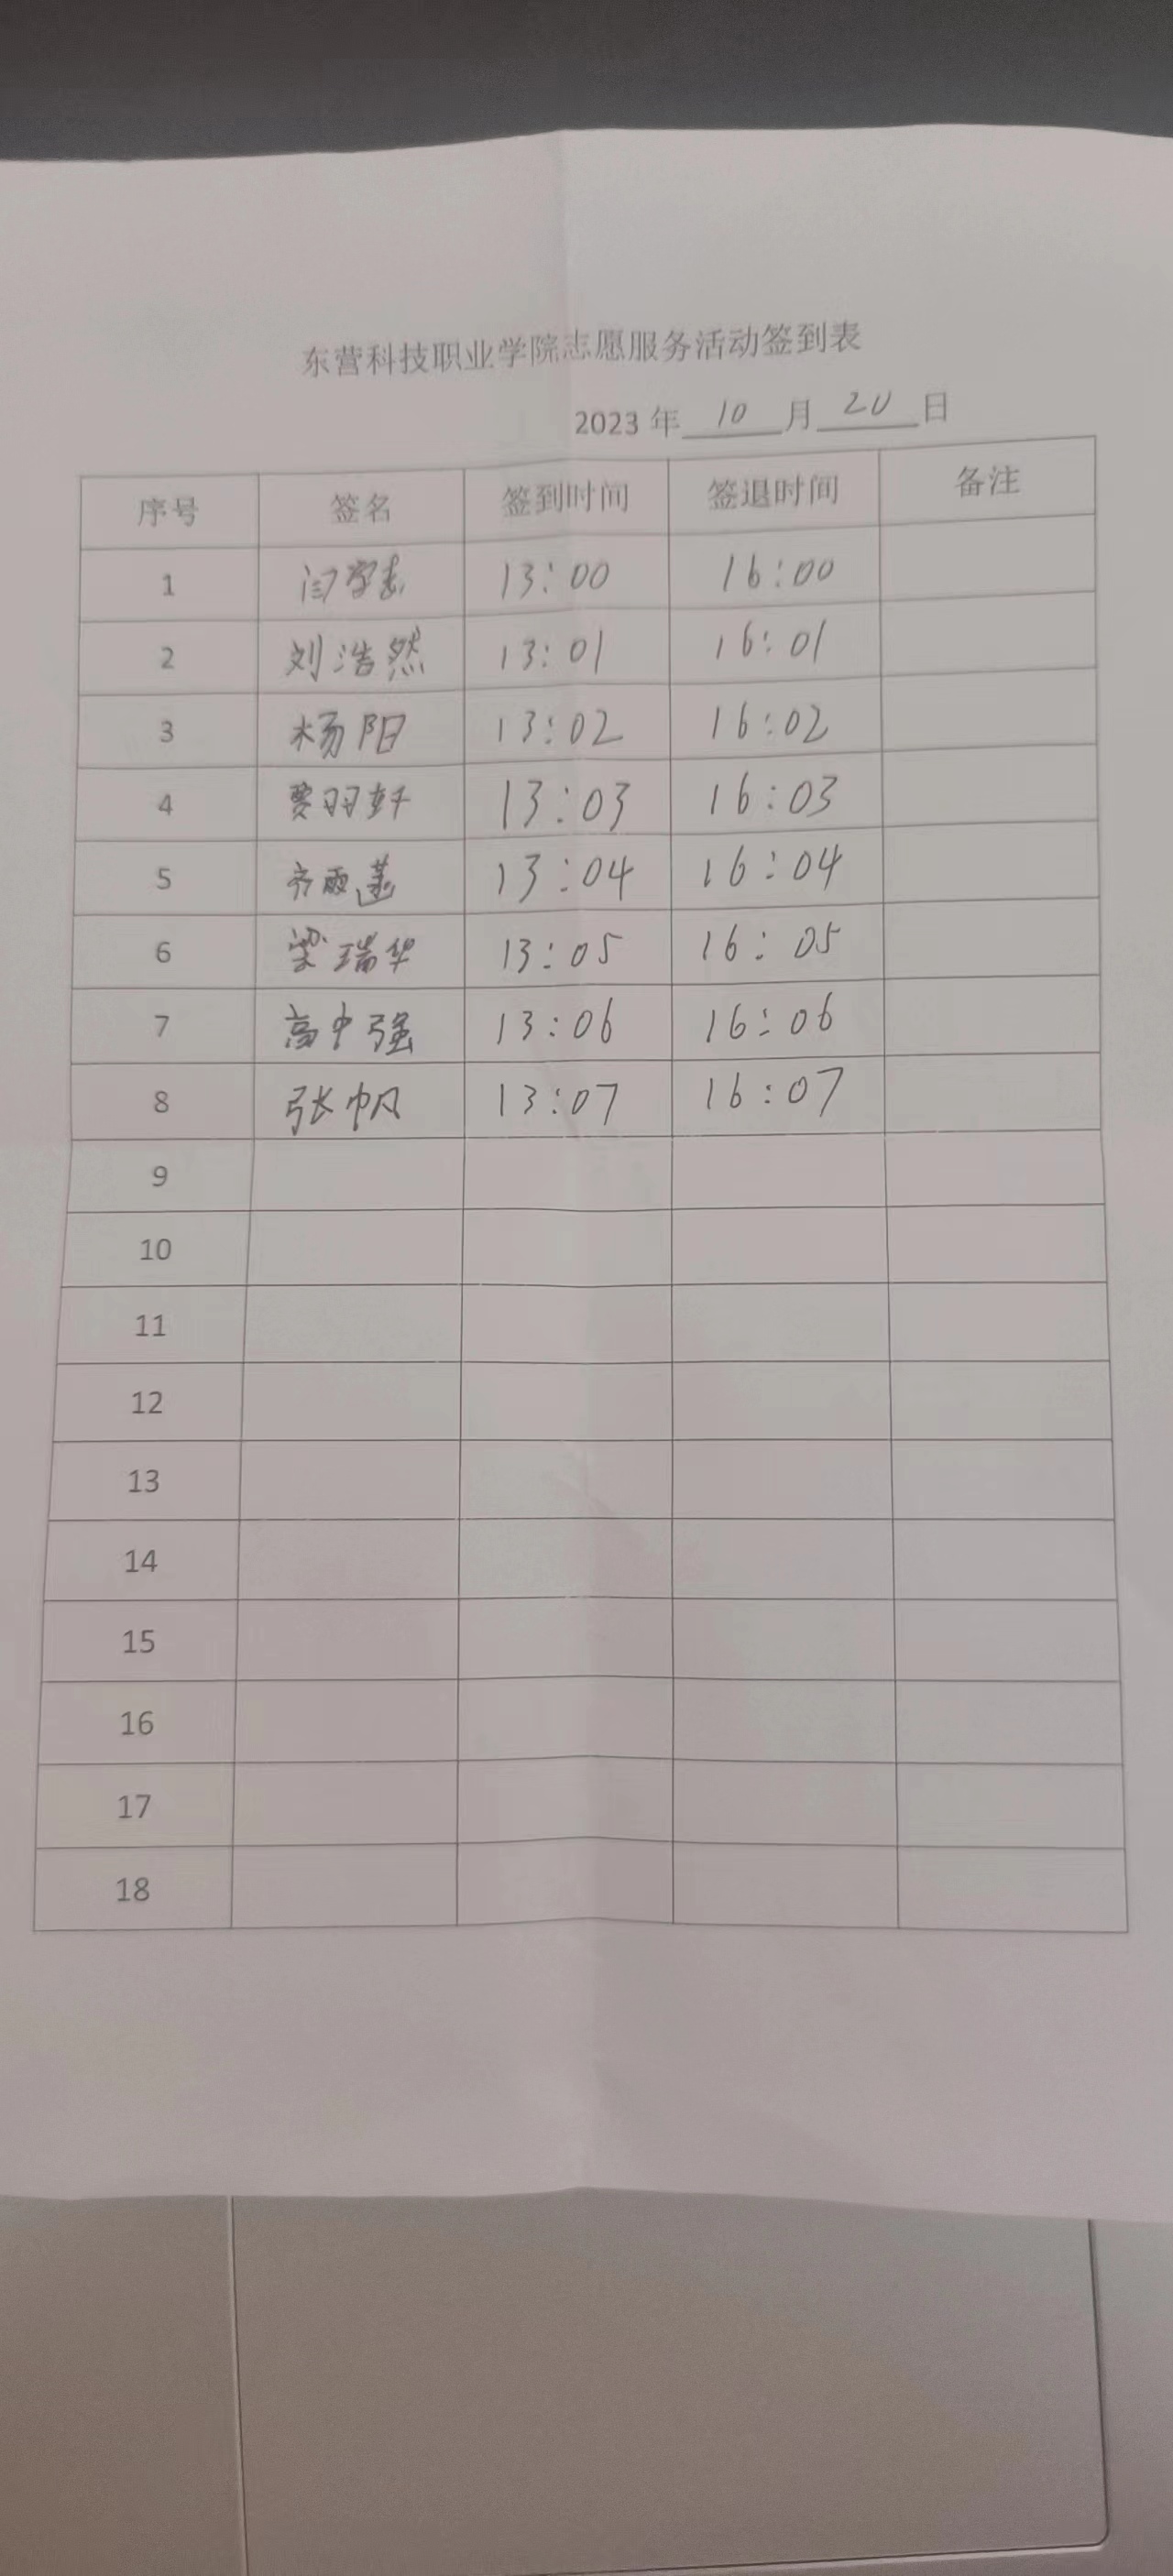 东营科技职业学院志愿服务活动签到表
2023 年 10 月 20 日
序号 签名 签到时间 签退时间 备注
1 13:00 16:00
2 刘浩然 13:01 16:01
3 杨阳 13:02 16:02
4 贾羽轩 13:03 16:03
5 齐雨 13:04 16:04
6 梁瑞华 13:05 16:05
7 高中强 13:06 16:06
8 张帆 13:07 16:07
9
10
11
12
13
14
15
16
17
18